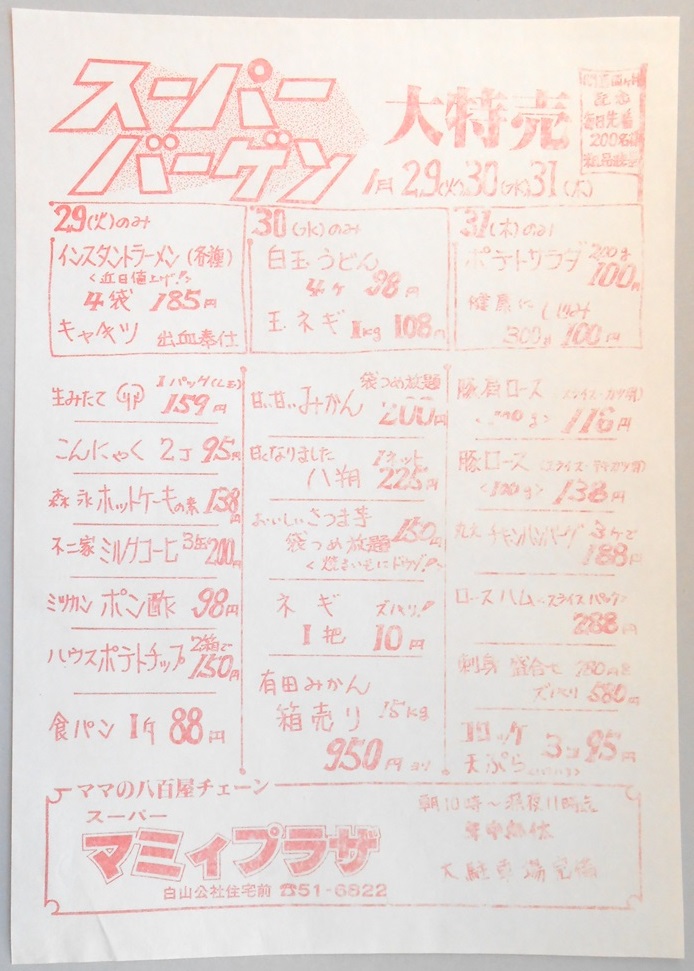 スーパー
バーゲン
大特売
記念
毎日先着
200名様
1月29(火)30(水)31(木)
29(火)のみ
インスタントラーメン(各種)
<近日値上げ!!>
4袋 185円
キャベツ 出血奉仕
30(水)のみ
白玉うどん
4ヶ 98円
玉ネギ 1kg 108円
31(木)のみ
ポテトサラダ 200g
100円
健康に しじみ
300g 100円
生みたて 卵 1パック(L玉)
159円
こんにゃく 2丁 95円
森永ホットケーキの素 138円
不二家ミルクコーヒ 3缶 200円
ミツカン ポン酢 98円
ハウスポテトチップ 2箱で
150円
食パン 1斤 88円
甘い甘いみかん 袋つめ放題
200円
甘くなりました 1ネット
八朔 225円
おいしいさつま芋 150円
袋つめ放題
<焼きいもにドウゾ>
ネギ ズバリ!
1把 10円
有田みかん
箱売り 15kg
950円より
豚肩ロース (スライス・カツ用)
<100g> 116円
豚ロース
<100g> 138円
丸大チャンハンバーグ 3ケで
188円
ロースハム <スライスパック>
288円
刺身 盛合せ 780円を
ズバリ 580円
コロッケ
天ぷら 3コ 95円
ママの八百屋チェーン
スーパー
マミィプラザ
白山公社住宅前 ☎51-6822
朝10時〜深夜11時迄
年中無休
大駐車場完備